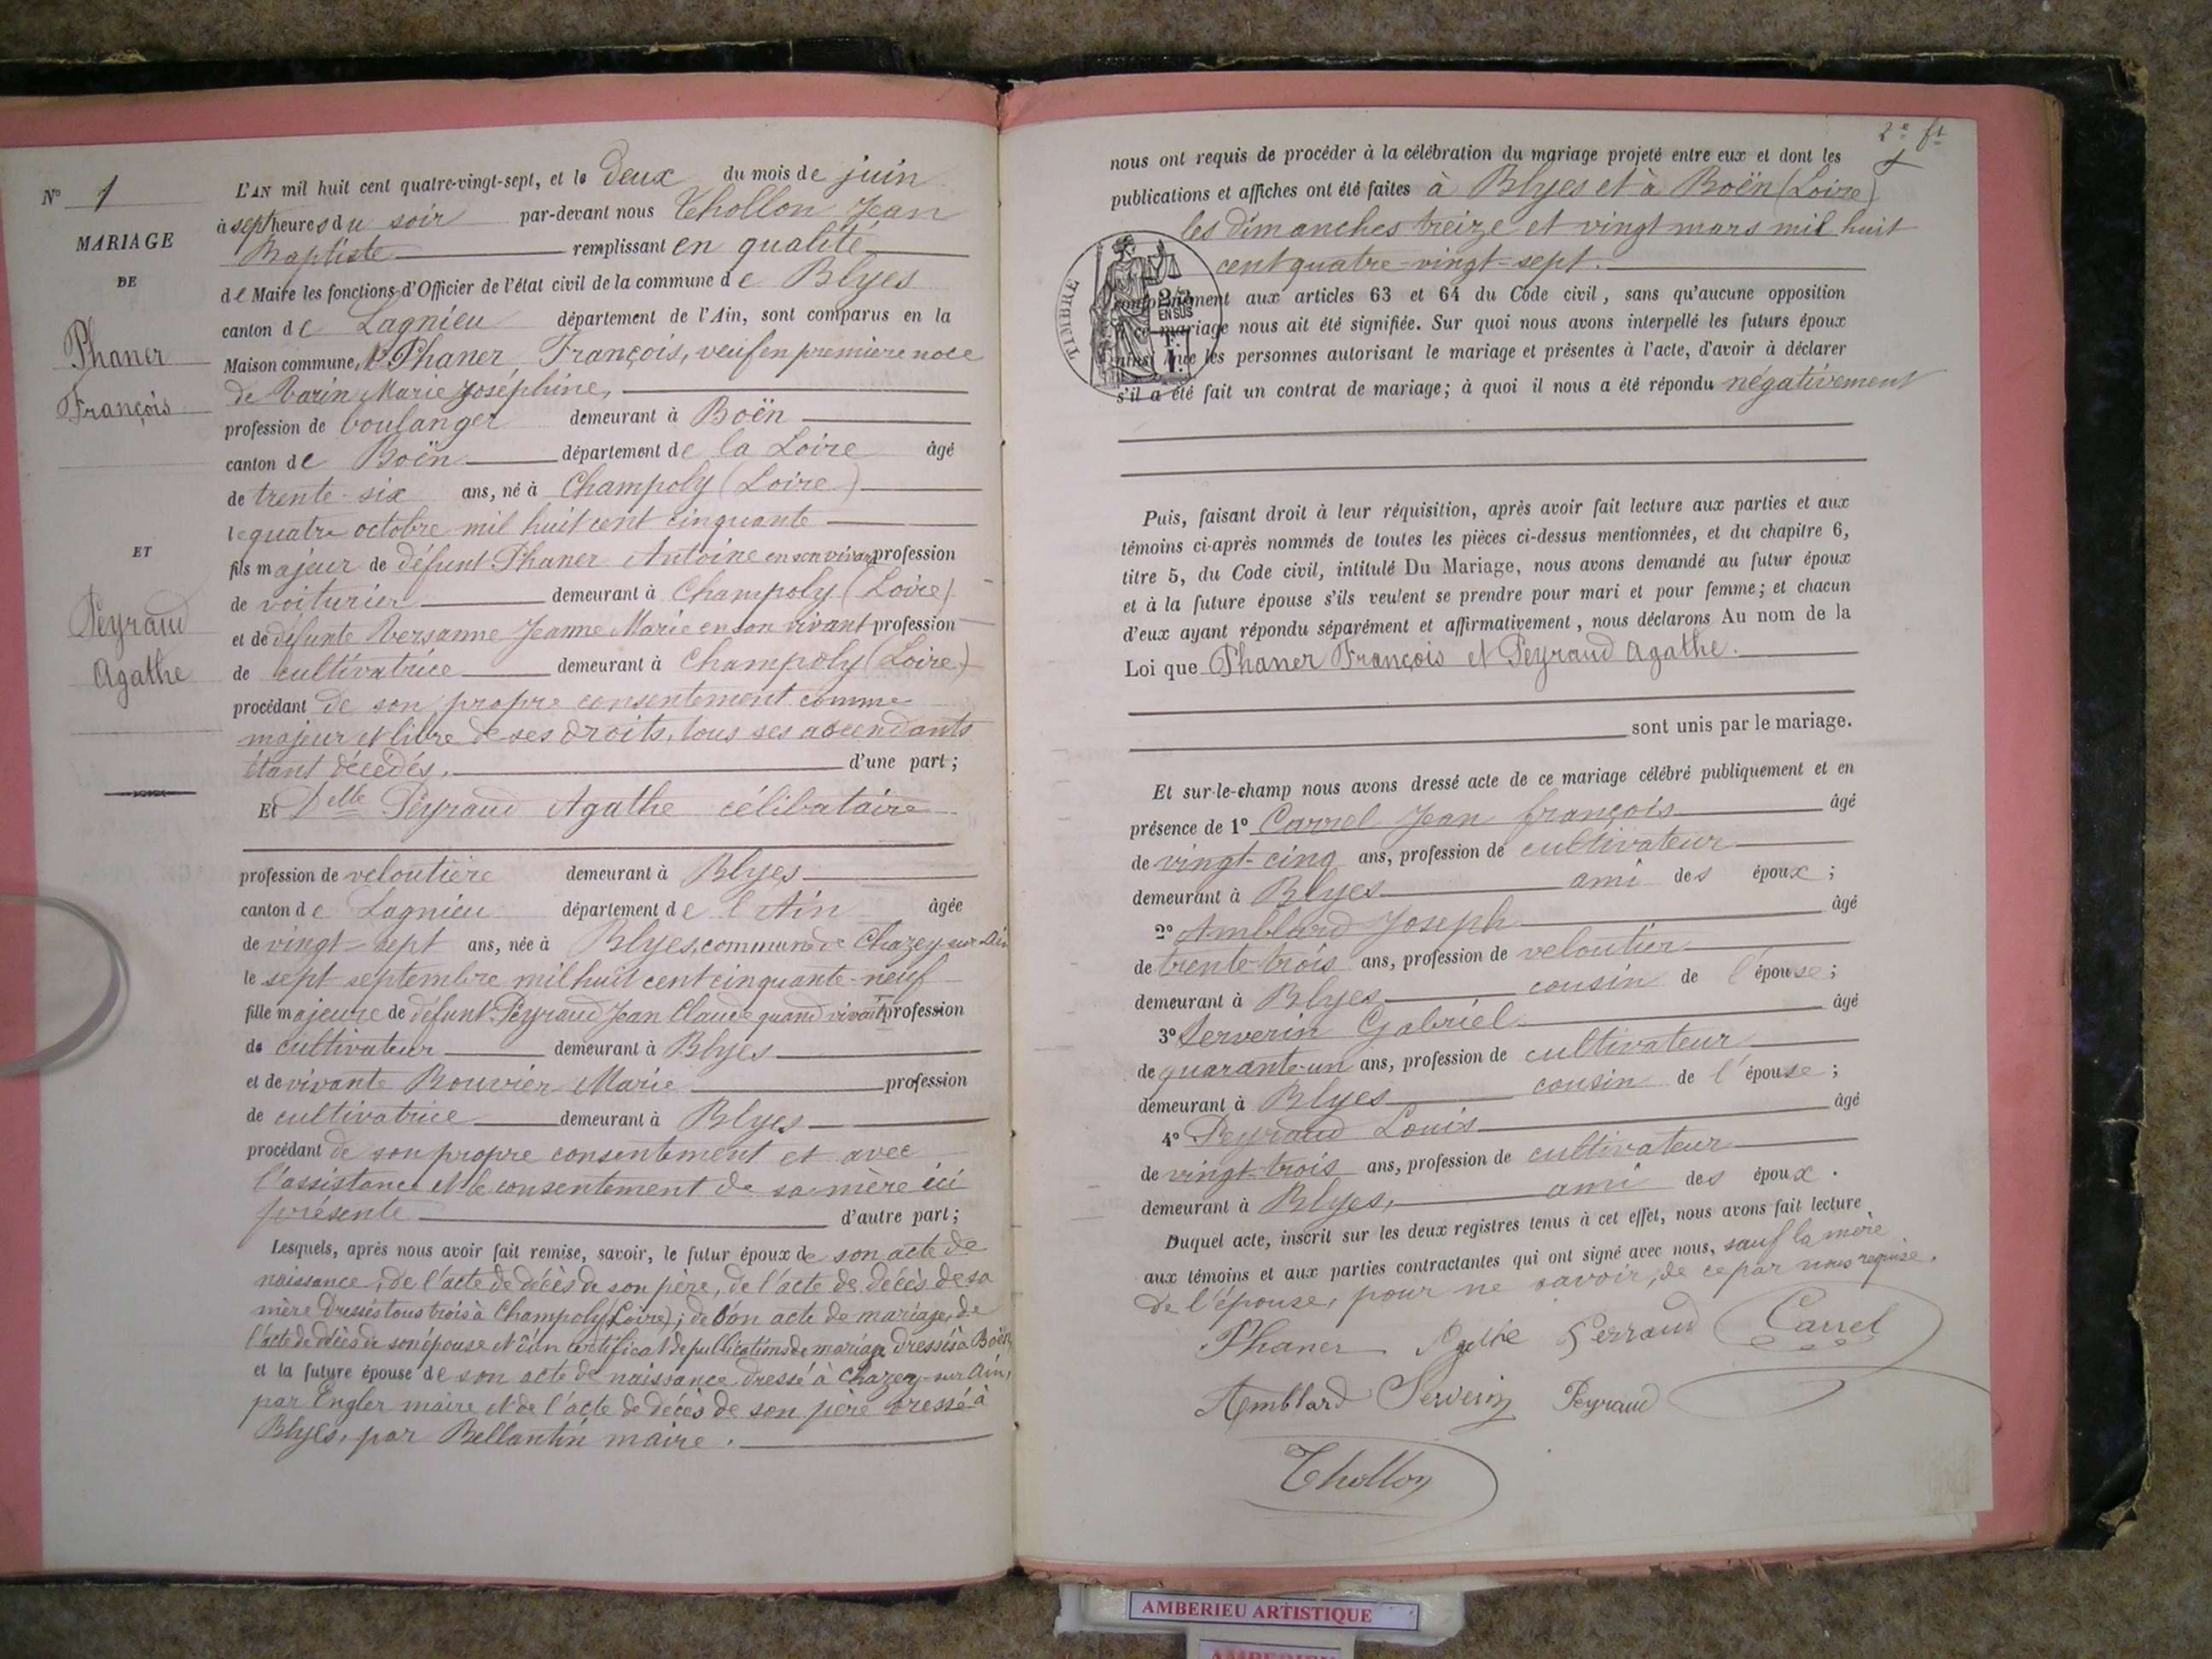 N° 1
MARIAGE
DE
Phaner
François
ET
Peyraud
Agathe
L'AN mil huit cent quatre-vingt-sept, et le deux du mois de juin
à sept heures du soir par-devant nous Chollon Jean
Baptiste remplissant en qualité
de Maire les fonctions d'Officier de l'état civil de la commune de Blyes
canton de Lagnieu département de l'Ain, sont comparus en la
Maison commune, Phaner François, veuf en premiere noce
de Varin Marie Joséphine,
profession de boulanger demeurant à Boën
canton de Boën département de la Loire âgé
de trente-six ans, né à Champoly (Loire)
le quatre octobre mil huit cent cinquante
fils majeur de défunt Phaner Antoine en son vivant profession
de voiturier demeurant à Champoly (Loire)
et de défunte Versanne Jeanne Marie en son vivant profession
de cultivatrice demeurant à Champoly (Loire)
procédant de son propre consentement comme
majeur et libre de ses droits, tous ses ascendants
étant décédés. d'une part;
Et Delle Peyraud Agathe célibataire
profession de veloutière demeurant à Blyes
canton de Lagnieu département de l'Ain âgée
de vingt-sept ans, née à Blyes, commune de Chazey-sur-Ain
le sept septembre mil huit cent cinquante-neuf
fille majeure de défunt Peyraud Jean Claude quand vivait profession
de cultivateur demeurant à Blyes
et de vivante Bouvier Marie profession
de cultivatrice demeurant à Blyes
procédant de son propre consentement et avec
l'assistance et le consentement de sa mère ici
présente d'autre part;
Lesquels, après nous avoir fait remise, savoir, le futur époux de son acte de
naissance, de l'acte de décès de son père, de l'acte de décès de sa
mère dressés tous trois à Champoly (Loire); de son acte de mariage, de
l'acte de décès de son épouse et d'un certificat de publications de mariage dressés à Boën,
et la future épouse de son acte de naissance dressé à Chazey-sur-Ain,
par Engler maire et de l'acte de décès de son père dressé à
Blyes, par Bellantin maire.
2e ft
nous ont requis de procéder à la célébration du mariage projeté entre eux et dont les
publications et affiches ont été faites à Blyes et à Boën (Loire)
les dimanches treize et vingt mars mil huit
cent quatre-vingt-sept.
TIMBRE
2/10 EN SUS
1 F.
conformément aux articles 63 et 64 du Code civil, sans qu'aucune opposition
à ce mariage nous ait été signifiée. Sur quoi nous avons interpellé les futurs époux
ainsi que les personnes autorisant le mariage et présentes à l'acte, d'avoir à déclarer
s'il a été fait un contrat de mariage; à quoi il nous a été répondu négativement
Puis, faisant droit à leur réquisition, après avoir fait lecture aux parties et aux
témoins ci-après nommés de toutes les pièces ci-dessus mentionnées, et du chapitre 6,
titre 5, du Code civil, intitulé Du Mariage, nous avons demandé au futur époux
et à la future épouse s'ils veulent se prendre pour mari et pour femme; et chacun
d'eux ayant répondu séparément et affirmativement, nous déclarons Au nom de la
Loi que Phaner François et Peyraud Agathe.
sont unis par le mariage.
Et sur-le-champ nous avons dressé acte de ce mariage célébré publiquement et en
présence de 1° Carrel Jean françois âgé
de vingt-cinq ans, profession de cultivateur
demeurant à Blyes ami des époux;
2° Amblard Joseph âgé
de trente-trois ans, profession de veloutier
demeurant à Blyes, cousin de l'épouse;
3° Serverin Gabriel âgé
de quarante-un ans, profession de cultivateur
demeurant à Blyes cousin de l'épouse;
4° Peyraud Louis âgé
de vingt-trois ans, profession de cultivateur
demeurant à Blyes, ami des époux.
Duquel acte, inscrit sur les deux registres tenus à cet effet, nous avons fait lecture
aux témoins et aux parties contractantes qui ont signé avec nous, sauf la mère
de l'épouse, pour ne savoir, de ce par nous requise.
Phaner Agathe Perraud Carrel
Amblard Serverin Peyraud
Chollon
AMBERIEU ARTISTIQUE
AMBERIEU